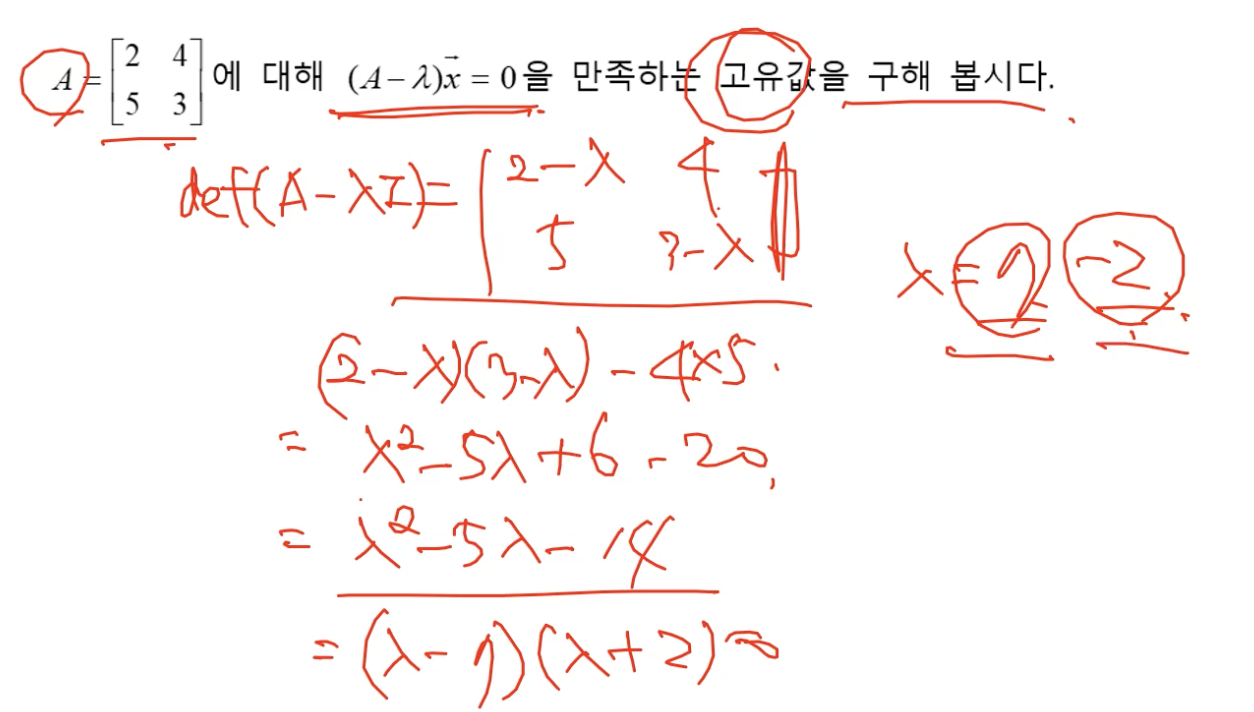 A = [2 4; 5 3] 에 대해 (A − λ)x⃗ = 0 을 만족하는 고유값을 구해 봅시다.
def(A − λI) = |2−λ 4
5 3−λ|
λ = 7 −2
(2−λ)(3−λ) − 4×5
= λ² − 5λ + 6 − 20
= λ² − 5λ − 14
= (λ − 7)(λ + 2) = 0